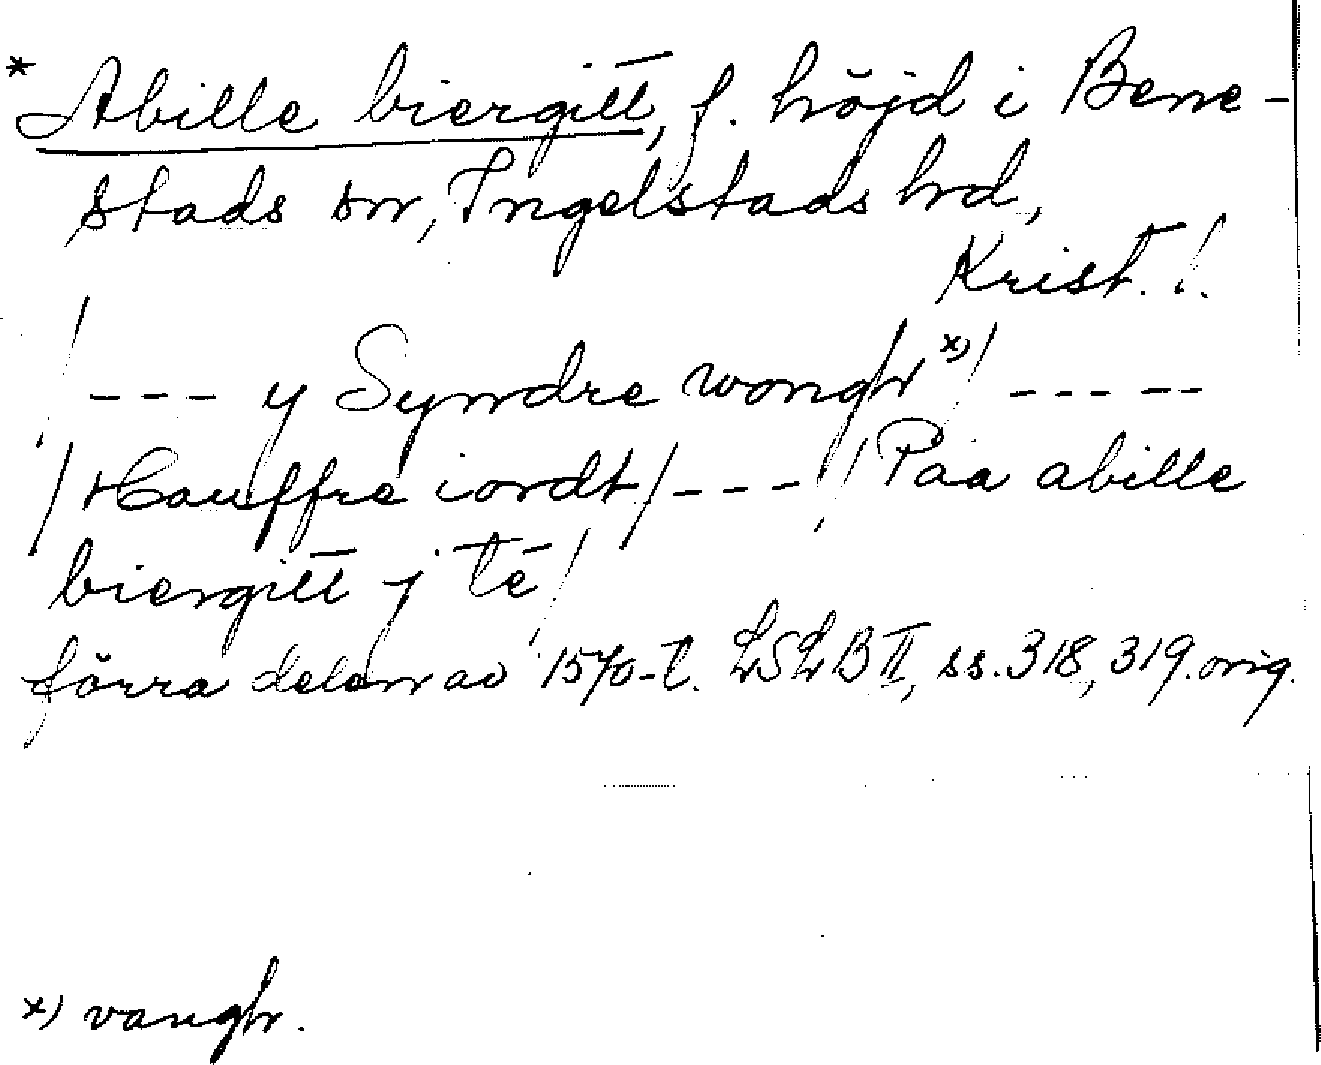 * Abille biergitt, f. höjd i Bene-
stads sn, Ingelstads hrd,
Krist. l.
/ --- y Syndre wongh x) / -----
/ Hauffre iordt / --- / Paa abille
biergitt j té /
förra delen av 1570-t. LSLB II, ss. 318, 319. orig.
x) vangh.